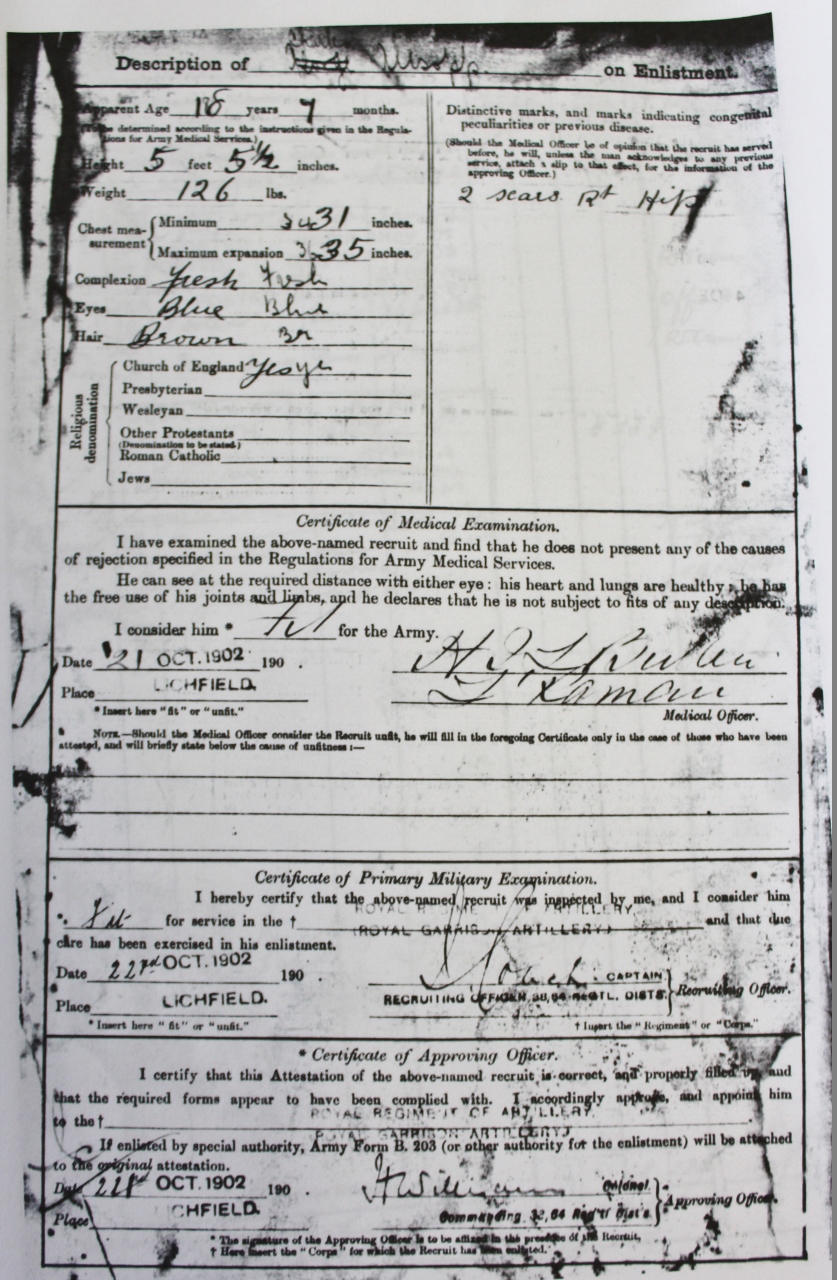 Description of Allsopp on Enlistment.
Apparent Age 18 years 7 months.
(To be determined according to the instructions given in the Regula-
tions for Army Medical Services.)
Height 5 feet 5½ inches.
Weight 126 lbs.
Chest mea-
surement
Minimum 34 31 inches.
Maximum expansion 36 35 inches.
Complexion Fresh Fresh
Eyes Blue Blue
Hair Brown Br
Religious denomination
Church of England Yes yes
Presbyterian
Wesleyan
Other Protestants
(Denomination to be stated.)
Roman Catholic
Jews
Distinctive marks, and marks indicating congenital
peculiarities or previous disease.
(Should the Medical Officer be of opinion that the recruit has served
before, he will, unless the man acknowledges to any previous
service, attach a slip to that effect, for the information of the
approving Officer.)
2 scars Rt Hip
Certificate of Medical Examination.
I have examined the above-named recruit and find that he does not present any of the causes
of rejection specified in the Regulations for Army Medical Services.
He can see at the required distance with either eye: his heart and lungs are healthy; he has
the free use of his joints and limbs, and he declares that he is not subject to fits of any description.
I consider him * fit for the Army.
Date 21 OCT. 1902 190 .
Place LICHFIELD.
* Insert here "fit" or "unfit."
Medical Officer.
NOTE.—Should the Medical Officer consider the Recruit unfit, he will fill in the foregoing Certificate only in the case of those who have been
attested, and will briefly state below the cause of unfitness:—
Certificate of Primary Military Examination.
I hereby certify that the above-named recruit was inspected by me, and I consider him
ROYAL REGIMENT OF ARTILLERY
* Fit for service in the † (ROYAL GARRISON ARTILLERY) and that due
care has been exercised in his enlistment.
Date 22nd OCT. 1902 190 .
CAPTAIN
Place LICHFIELD.
RECRUITING OFFICER, 38, 64 REGTL. DISTS. Recruiting Officer.
* Insert here "fit" or "unfit."
† Insert the "Regiment" or "Corps."
* Certificate of Approving Officer.
I certify that this Attestation of the above-named recruit is correct, and properly filled up, and
that the required forms appear to have been complied with. I accordingly approve, and appoint him
ROYAL REGIMENT OF ARTILLERY
to the †
(ROYAL GARRISON ARTILLERY)
If enlisted by special authority, Army Form B. 203 (or other authority for the enlistment) will be attached
to the original attestation.
Date OCT. 1902 190 .
Colonel
Place LICHFIELD.
Approving Officer.
* The signature of the Approving Officer is to be affixed in the presence of the Recruit.
† Here insert the "Corps" for which the Recruit has been enlisted.